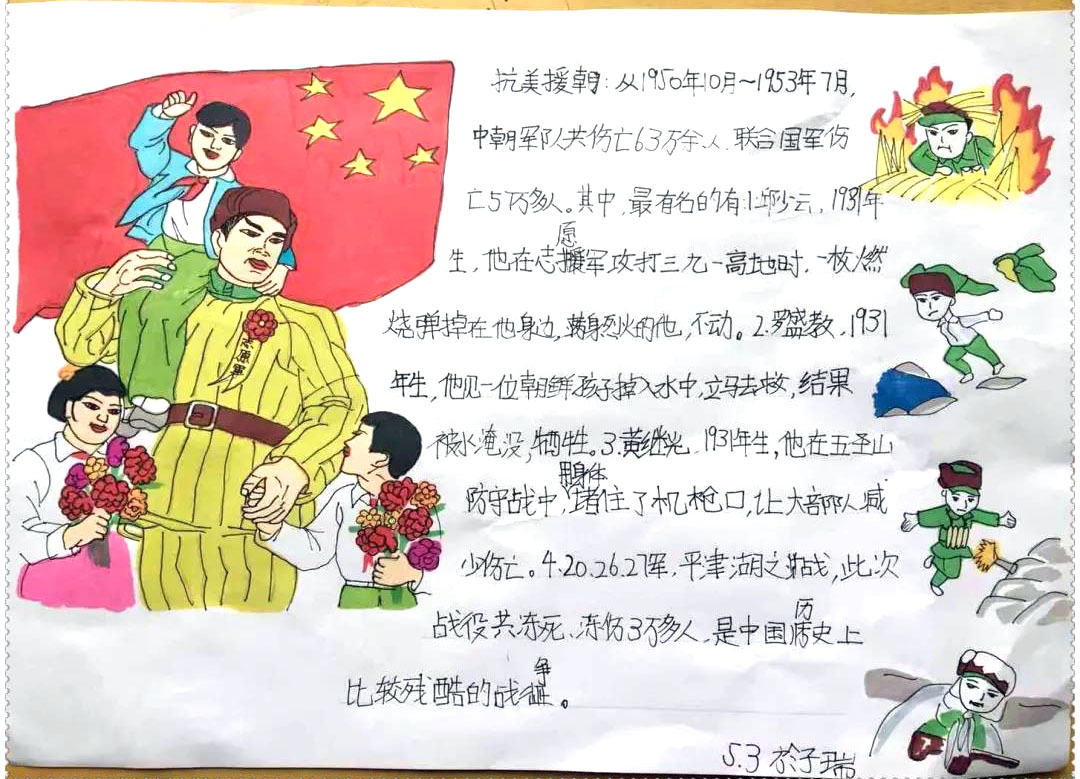 抗美援朝：从1950年10月～1953年7月，
中朝军队共伤亡63万余人.联合国军伤
亡5万多人。其中，最有名的有：1.邱少云，1931年
生，他在志愿军攻打三九一高地时，一枚燃
烧弹掉在他身边，满身烈火的他，不动。2.罗盛教，1931
年生，他见一位朝鲜孩子掉入水中，立马去救，结果
被水淹没，牺牲。3.黄继光，1931年生，他在五圣山
防守战中，用身体堵住了机枪口，让大部队减
少伤亡。4.20.26.27军，平津湖之战，此次
战役共冻死、冻伤3万多人，是中国历史上
比较残酷的战争。
5.3 於子瑞
志愿军